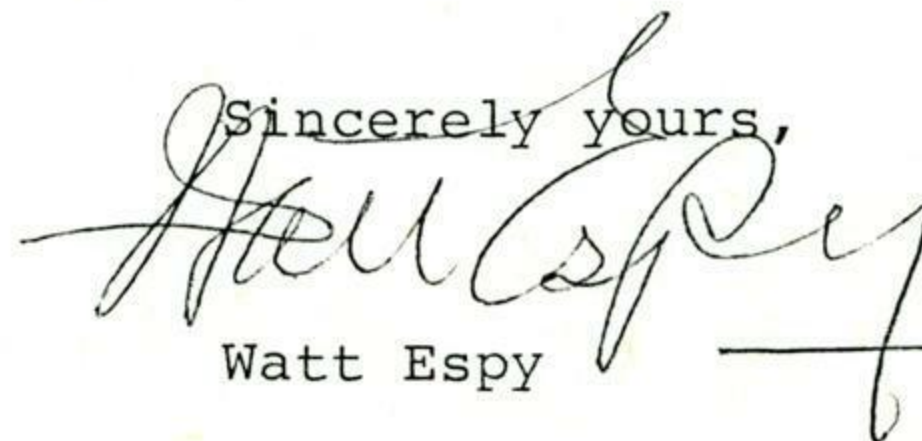 Sincerely yours,
Watt Espy
Watt Espy